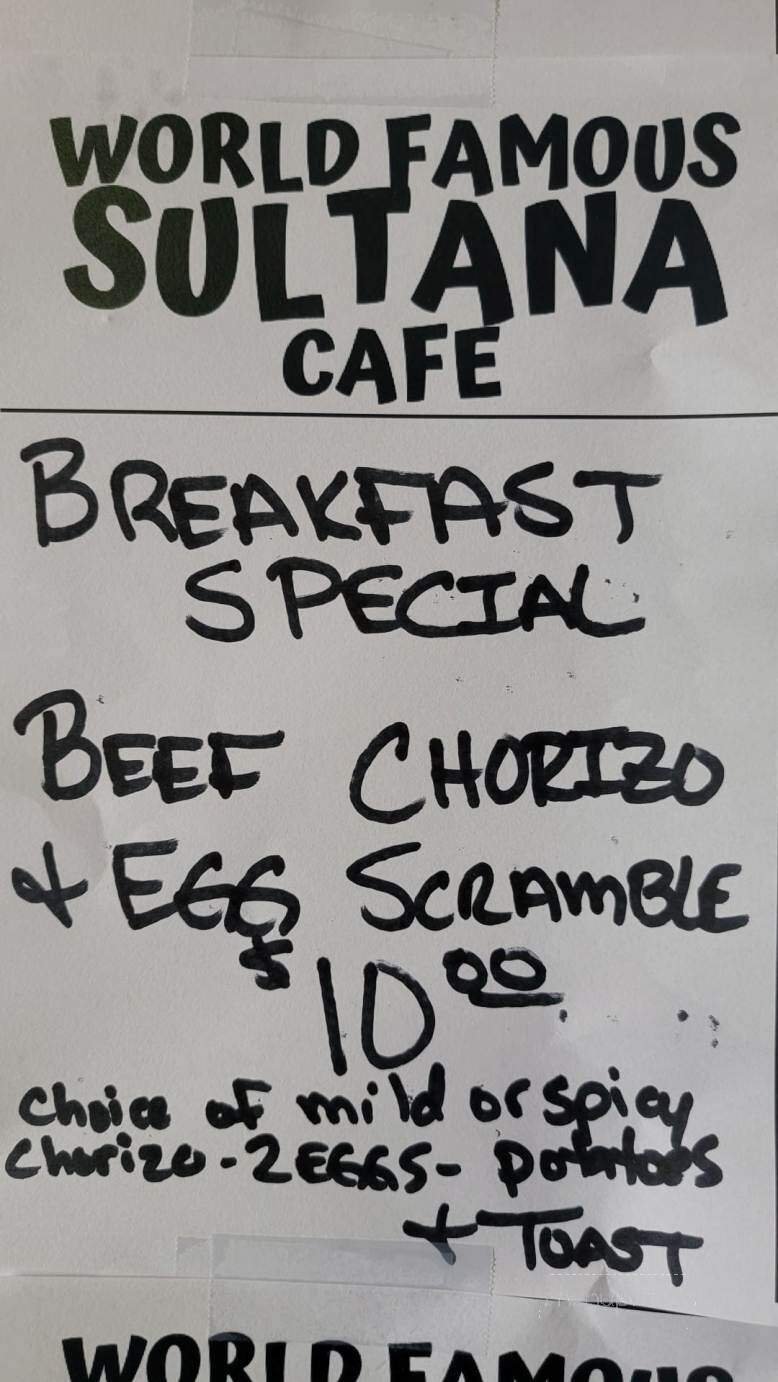 WORLD FAMOUS
SULTANA
CAFE
BREAKFAST
SPECIAL
BEEF CHORIZO
& EGG SCRAMBLE
$10.00
choice of mild or spicy
chorizo - 2 EGGS - potatoes
+ TOAST
WORLD FAMOUS